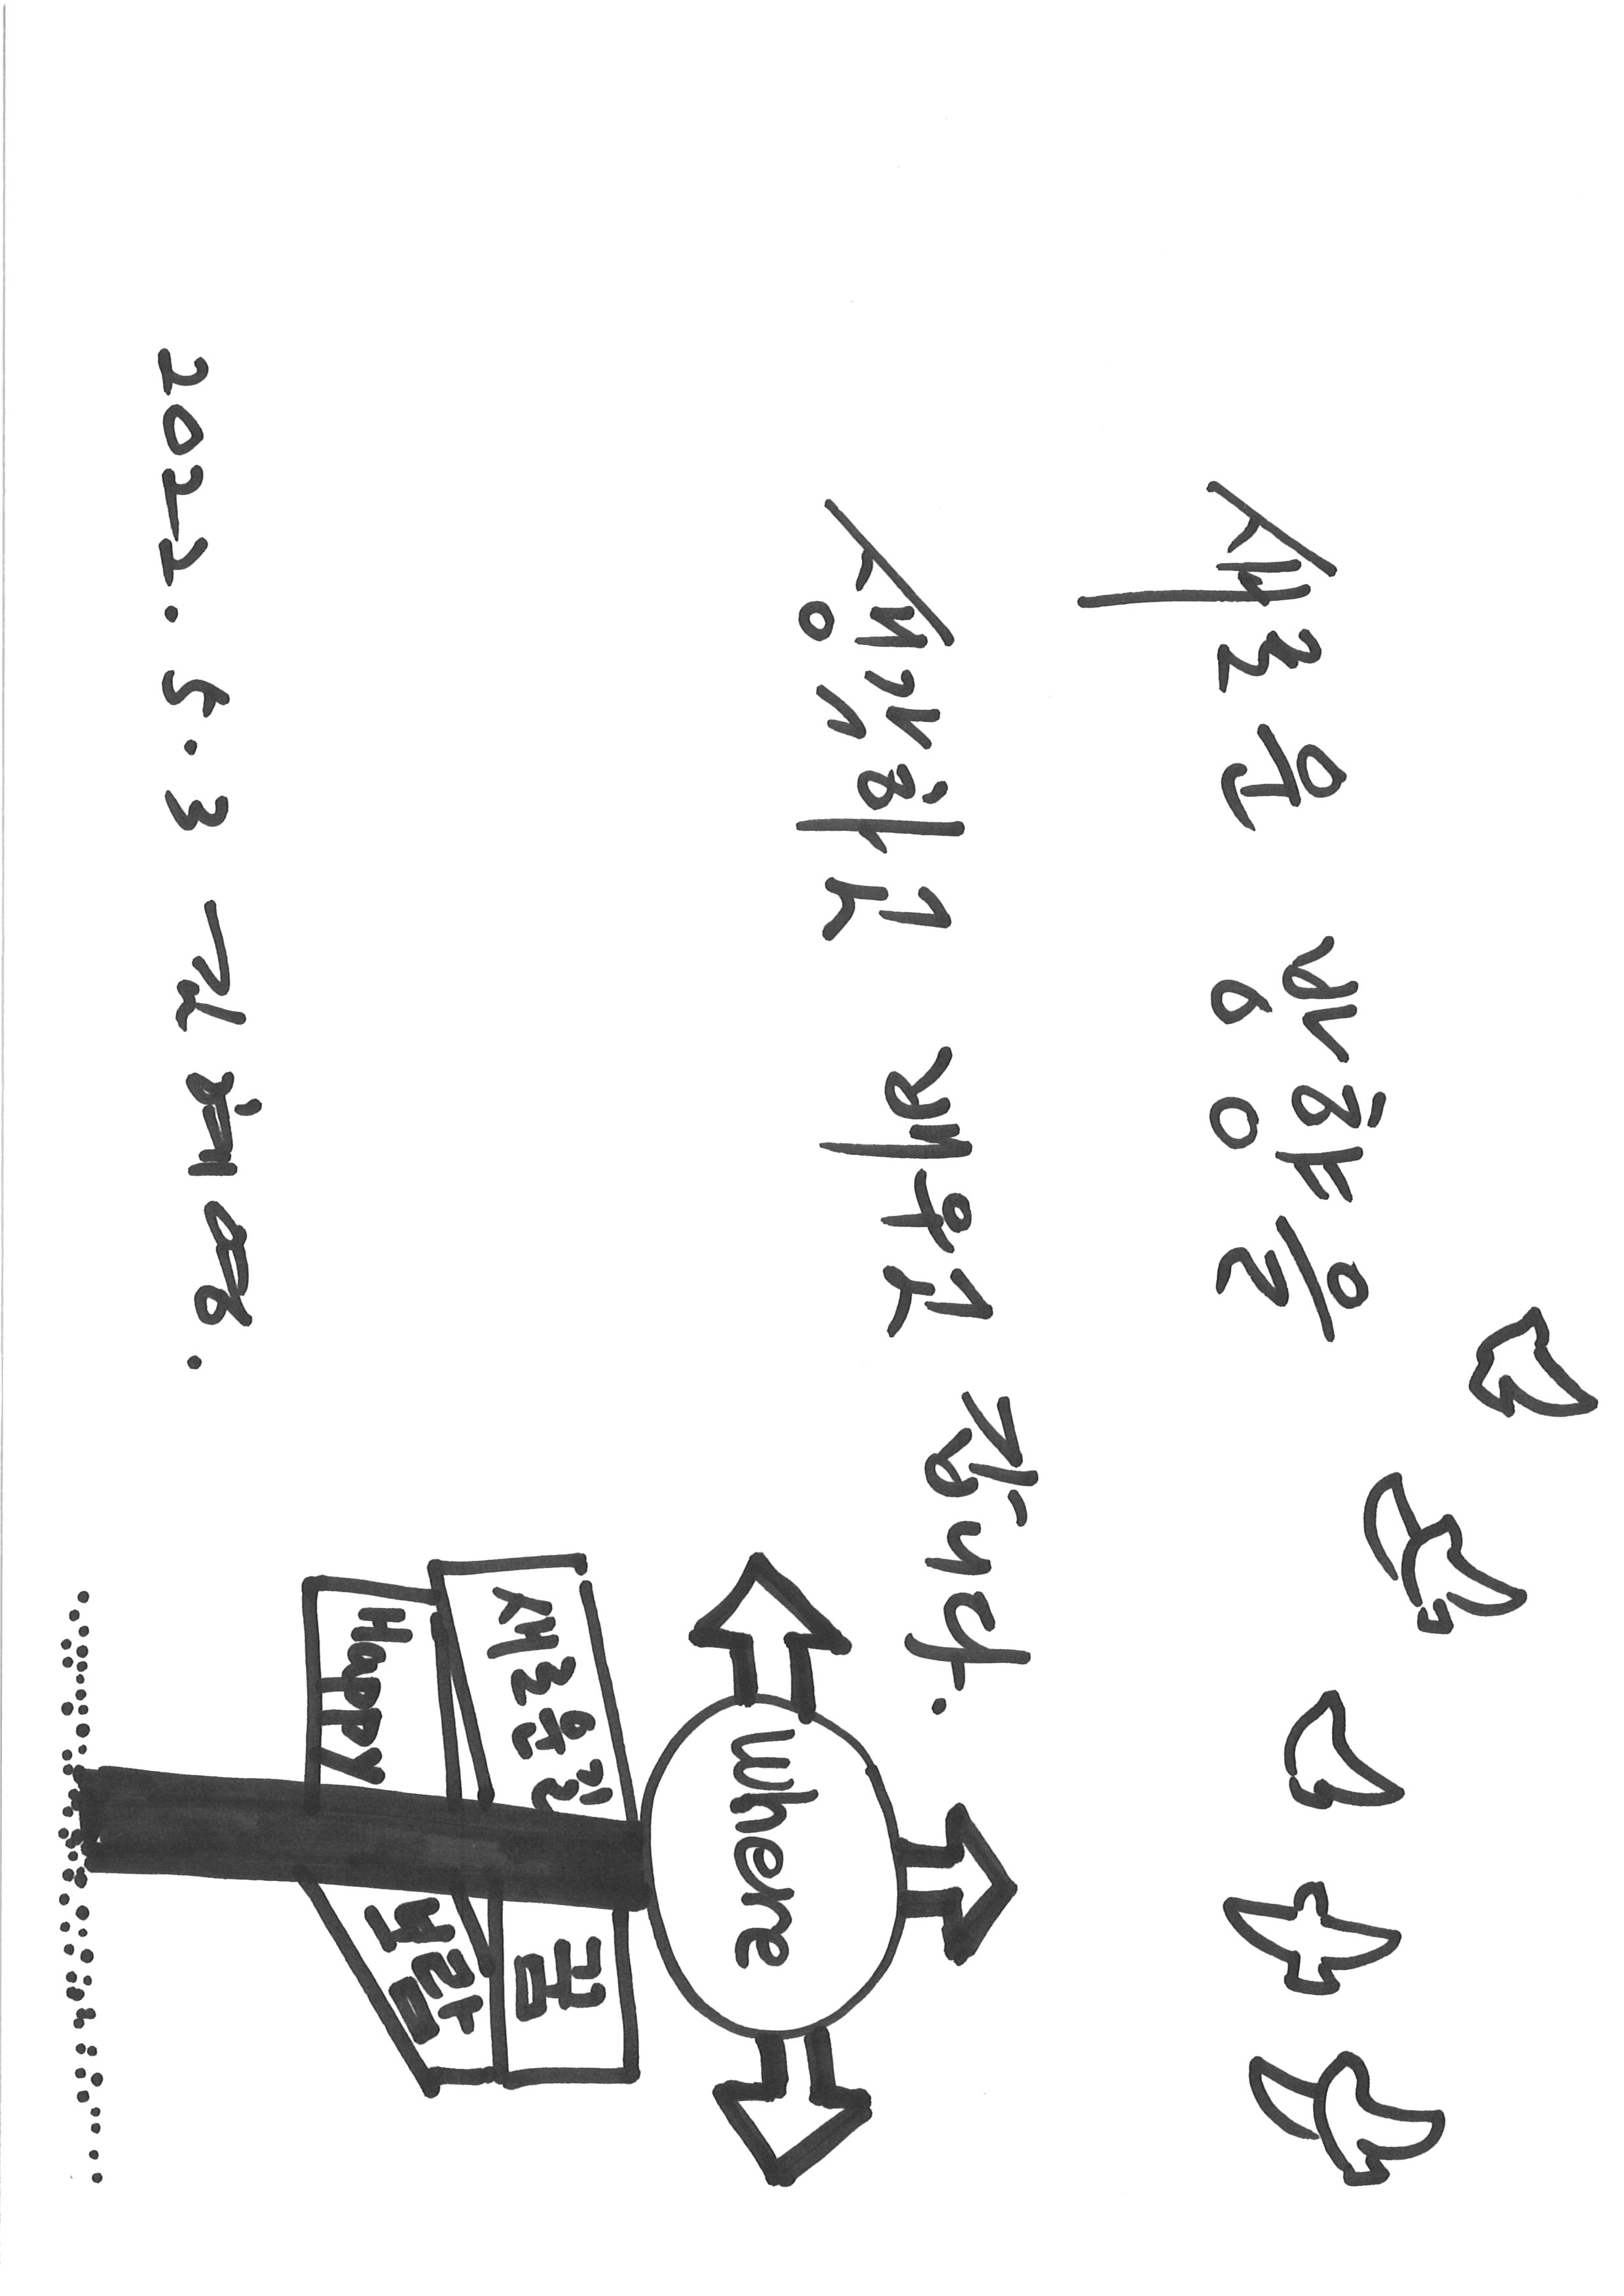 새로운 방향을
생각하고 배우고 갑니다.
Where
새로운길
꿈
Happy
보람
2022. 5. 3